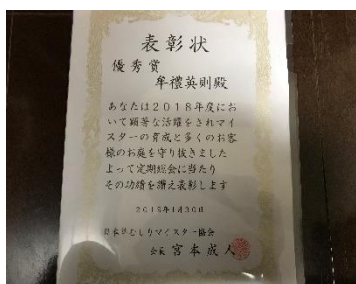 表彰状
優秀賞
牟禮英則殿
あなたは2018年度にお
いて顕著な活躍をされマイ
スターの育成と多くのお客
様のお庭を守り抜きました
よって定期総会に当たり
その功績を讃え表彰します
日本草むしりマイスター協会
会長 宮本成人